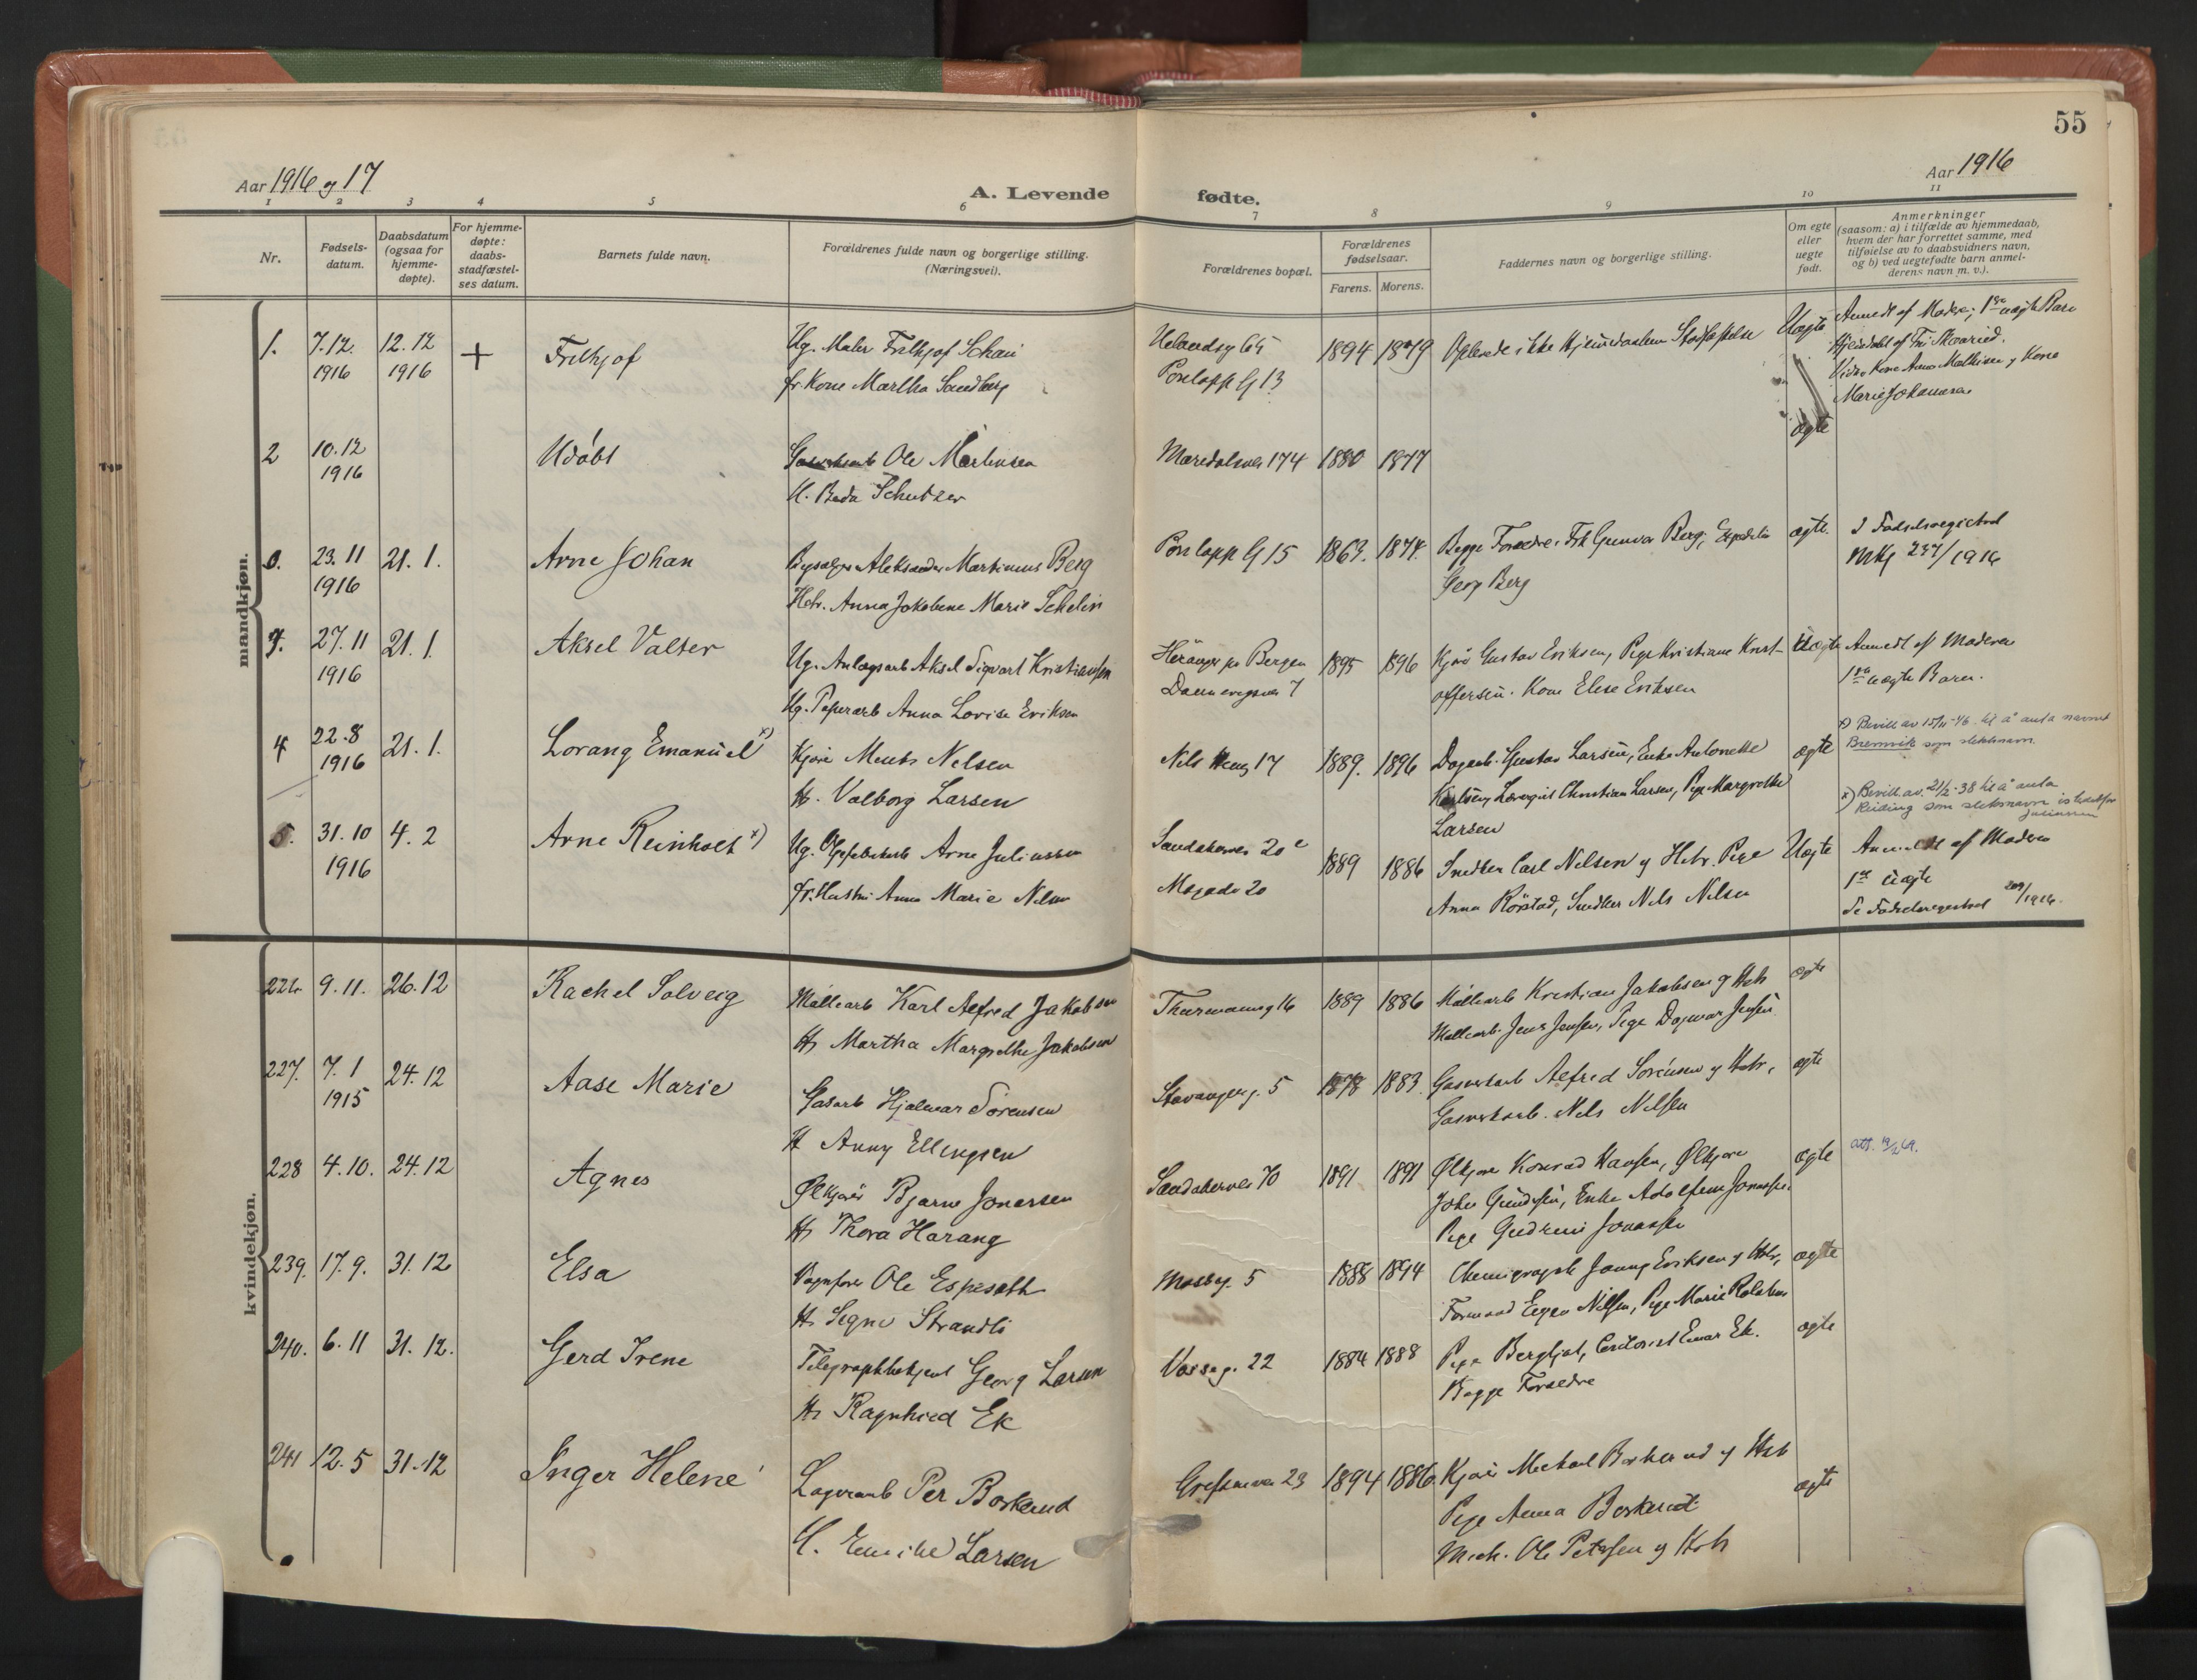 55
Aar 1916 og 17
A. Levende
fødte.
Aar 1916
1 2 3 4 5 6 7 8 9 10 11
Nr.
Fødsels-
datum.
Daabsdatum
(ogsaa for
hjemme-
døpte).
For hjemme-
døpte:
daabs-
stadfæstel-
ses datum.
Barnets fulde navn.
Forældrenes fulde navn og borgerlige stilling.
(Næringsvei).
Forældrenes bopæl.
Forældrenes
fødselsaar.
Farens. Morens.
Faddernes navn og borgerlige stilling.
Om egte
eller
uegte
født.
Anmerkninger
(saasom: a) i tilfælde av hjemmedaab,
hvem der har forrettet samme, med
tilføielse av to daabsvidners navn,
og b) ved uegtefødte barn anmel-
derens navn m. v.).
mandkjøn.
1. 7.12. 1916 12.12 1916 + Frithjof
Ug. Maler Frithjof
fr. Kone Martha Sandberg
1894 1879
Uegte
Anmeldt af Moderen, 1ste uægte Barn
Vidner Kone Anna Mathisen og Kone
Marie Johansen
2 10.12 1916 Udøbt
Ole Martinsen
H. Beda
Maridalsvei 174 1880 1877
ægte
23.11 1916 21.1. Arne Johan
Aleksander Martinius Berg
Hstr. Anna Jakobine Marie Schelin
15 1863. 1874.
Begge Forældre, Frk Gunvor Berg,
Georg Berg
ægte.
I Fødselsregistret
237/1916
27.11 1916 21.1. Aksel Valter
Ug. Anlægsarb Aksel Sigvart Kristiansen
Ug. Papirarb Anna Lovise Eriksen
Bergen
7
1895 1896
Kjøre Gustav Eriksen, Pige Kristiane Krist-
offersen. Kone Elise Eriksen
Uægte
Anmeldt af Moderen
1ste uægte Barn.
4 22.8 1916 21.1. Lorang Emanuel x)
Kjøre Nelsen
H. Valborg Larsen
17 1889. 1896
Gustav Larsen, Enke Antonette
Christian Larsen, Pige Margrethe
Larsen
ægte
x) Bevill. av 15/11-46 til å anta navnet
Bremvik som slektsnavn.
5. 31.10 1916 4.2 Arne Reinholt x)
Ug. Arne Juliussen
fr. Hustru Anna Marie Nilsen
Sandakerveien 20c
20
1889 1886
Snedker Carl Nilsen og Hstr. Pige
Anna Rørstad, Snedker Nils Nilsen
Uegte
x) Bevill. av 21/2-38 til å anta
Reiding som slektsnavn istedetfor
Juliussen
Anmeldt af Moderen
1ste uægte
Se Fødselsregistret 209/1916.
kvindekjøn.
226. 9.11. 26.12 Rachel Solveig
Møllearb Karl Alfred Jakobsen
H. Martha Margrethe Jakobsen
Thurmannsg 16 1889 1886
Møllearb Kristian Jakobsen og Hstr
Møllearb. Jens Jensen, Pige Dagmar Jensen
ægte
227. 7.1 1915 24.12 Aase Marie
Gasarb Hjalmar Sørensen
H Anny Ellingsen
Stavangerg. 5 1878 1883.
Gasverkarb Alfred Sørensen og Hstr,
Gasverkarb. Nils Nilsen
ægte
228 4.10. 24.12 Agnes
Ølkjører Bjarne Jonassen
H. Thora Harang
Sandakervei 70 1891 1891
Ølkjører Konrad Hansen, Ølkjører
Johan Enke Adolfine Jonassen.
Pige Gudrun Jonassen
ægte
239. 17.9. 31.12 Elsa
Vognfører Ole Espeseth
H. Signe Strandli
Mosseg. 5 1888 1894
Chemigraph Eriksen og Hstr,
Formand Nilsen, Pige Marie
ægte
240. 6.11 31.12. Gerd Irene
Georg Larsen
H. Ragnhild Ek
Vosseg. 22 1884 1888
Pige Bergljot, Einar Ek.
Begge Forældre
ægte
241 12.5 31.12 Inger Helene
Lagerarb Per Borkerud
H. Larsen
Grefsenvei 23 1894 1886
Kjører Borkerud og Hstr
Pige Anna Borkerud
Mech. Ole Petersen og Hstr
ægte